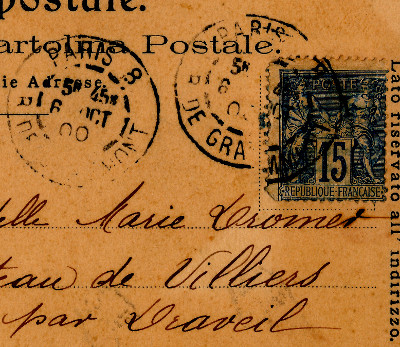 postale.
Cartolina Postale.
PARIS 8
5 45
6 OCT
00
PARIS
5
6
DE GRA
POSTES
15
REPUBLIQUE FRANÇAISE
Lato riservato all' indirizzo.
elle Marie Cromer
teau de Villiers
par Draveil